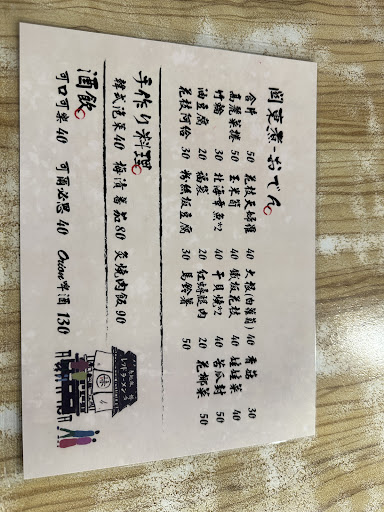 關東煮-おでん
50 花枝天婦羅 40 大根(白蘿蔔)40 香菇 30
高麗菜捲 50 玉米筍 40 花枝 40 娃娃菜 40
竹輪 30 北海章魚x2 40 干貝燒x2 40 苦瓜封 50
油豆腐 20 福袋 20 紅蟳腿肉 20 花椰菜 50
花枝阿給 30 豆腐 30 馬鈴薯 50
手作り料理
韓式泡菜 40 梅漬蕃茄 80 炙燒肉飯 90
酒飲
可口可樂 40 可爾必思 40 Orion啤酒 130